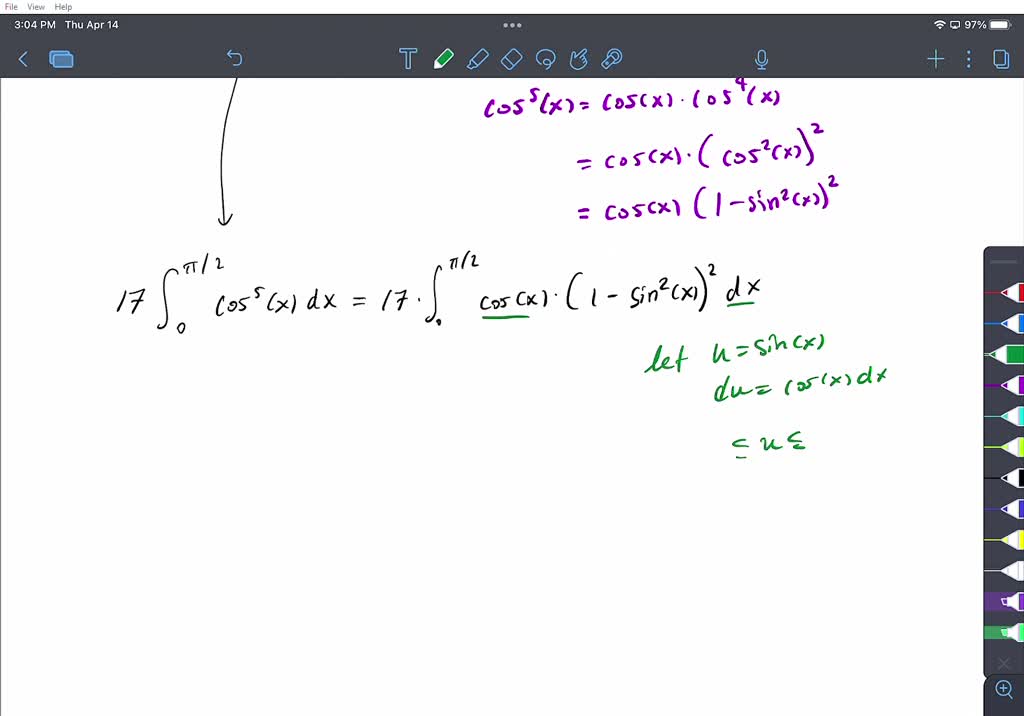 File View Help
3:04 PM Thu Apr 14
97%
cos⁵(x) = cos(x) · cos⁴(x)
= cos(x) · (cos²(x))²
= cos(x) (1 - sin²(x))²
17 ∫₀^π/2 cos⁵(x) dx = 17 · ∫₀^π/2 cos(x) · (1 - sin²(x))² dx
let u = sin(x)
du = cos(x) dx
≤ u ≤